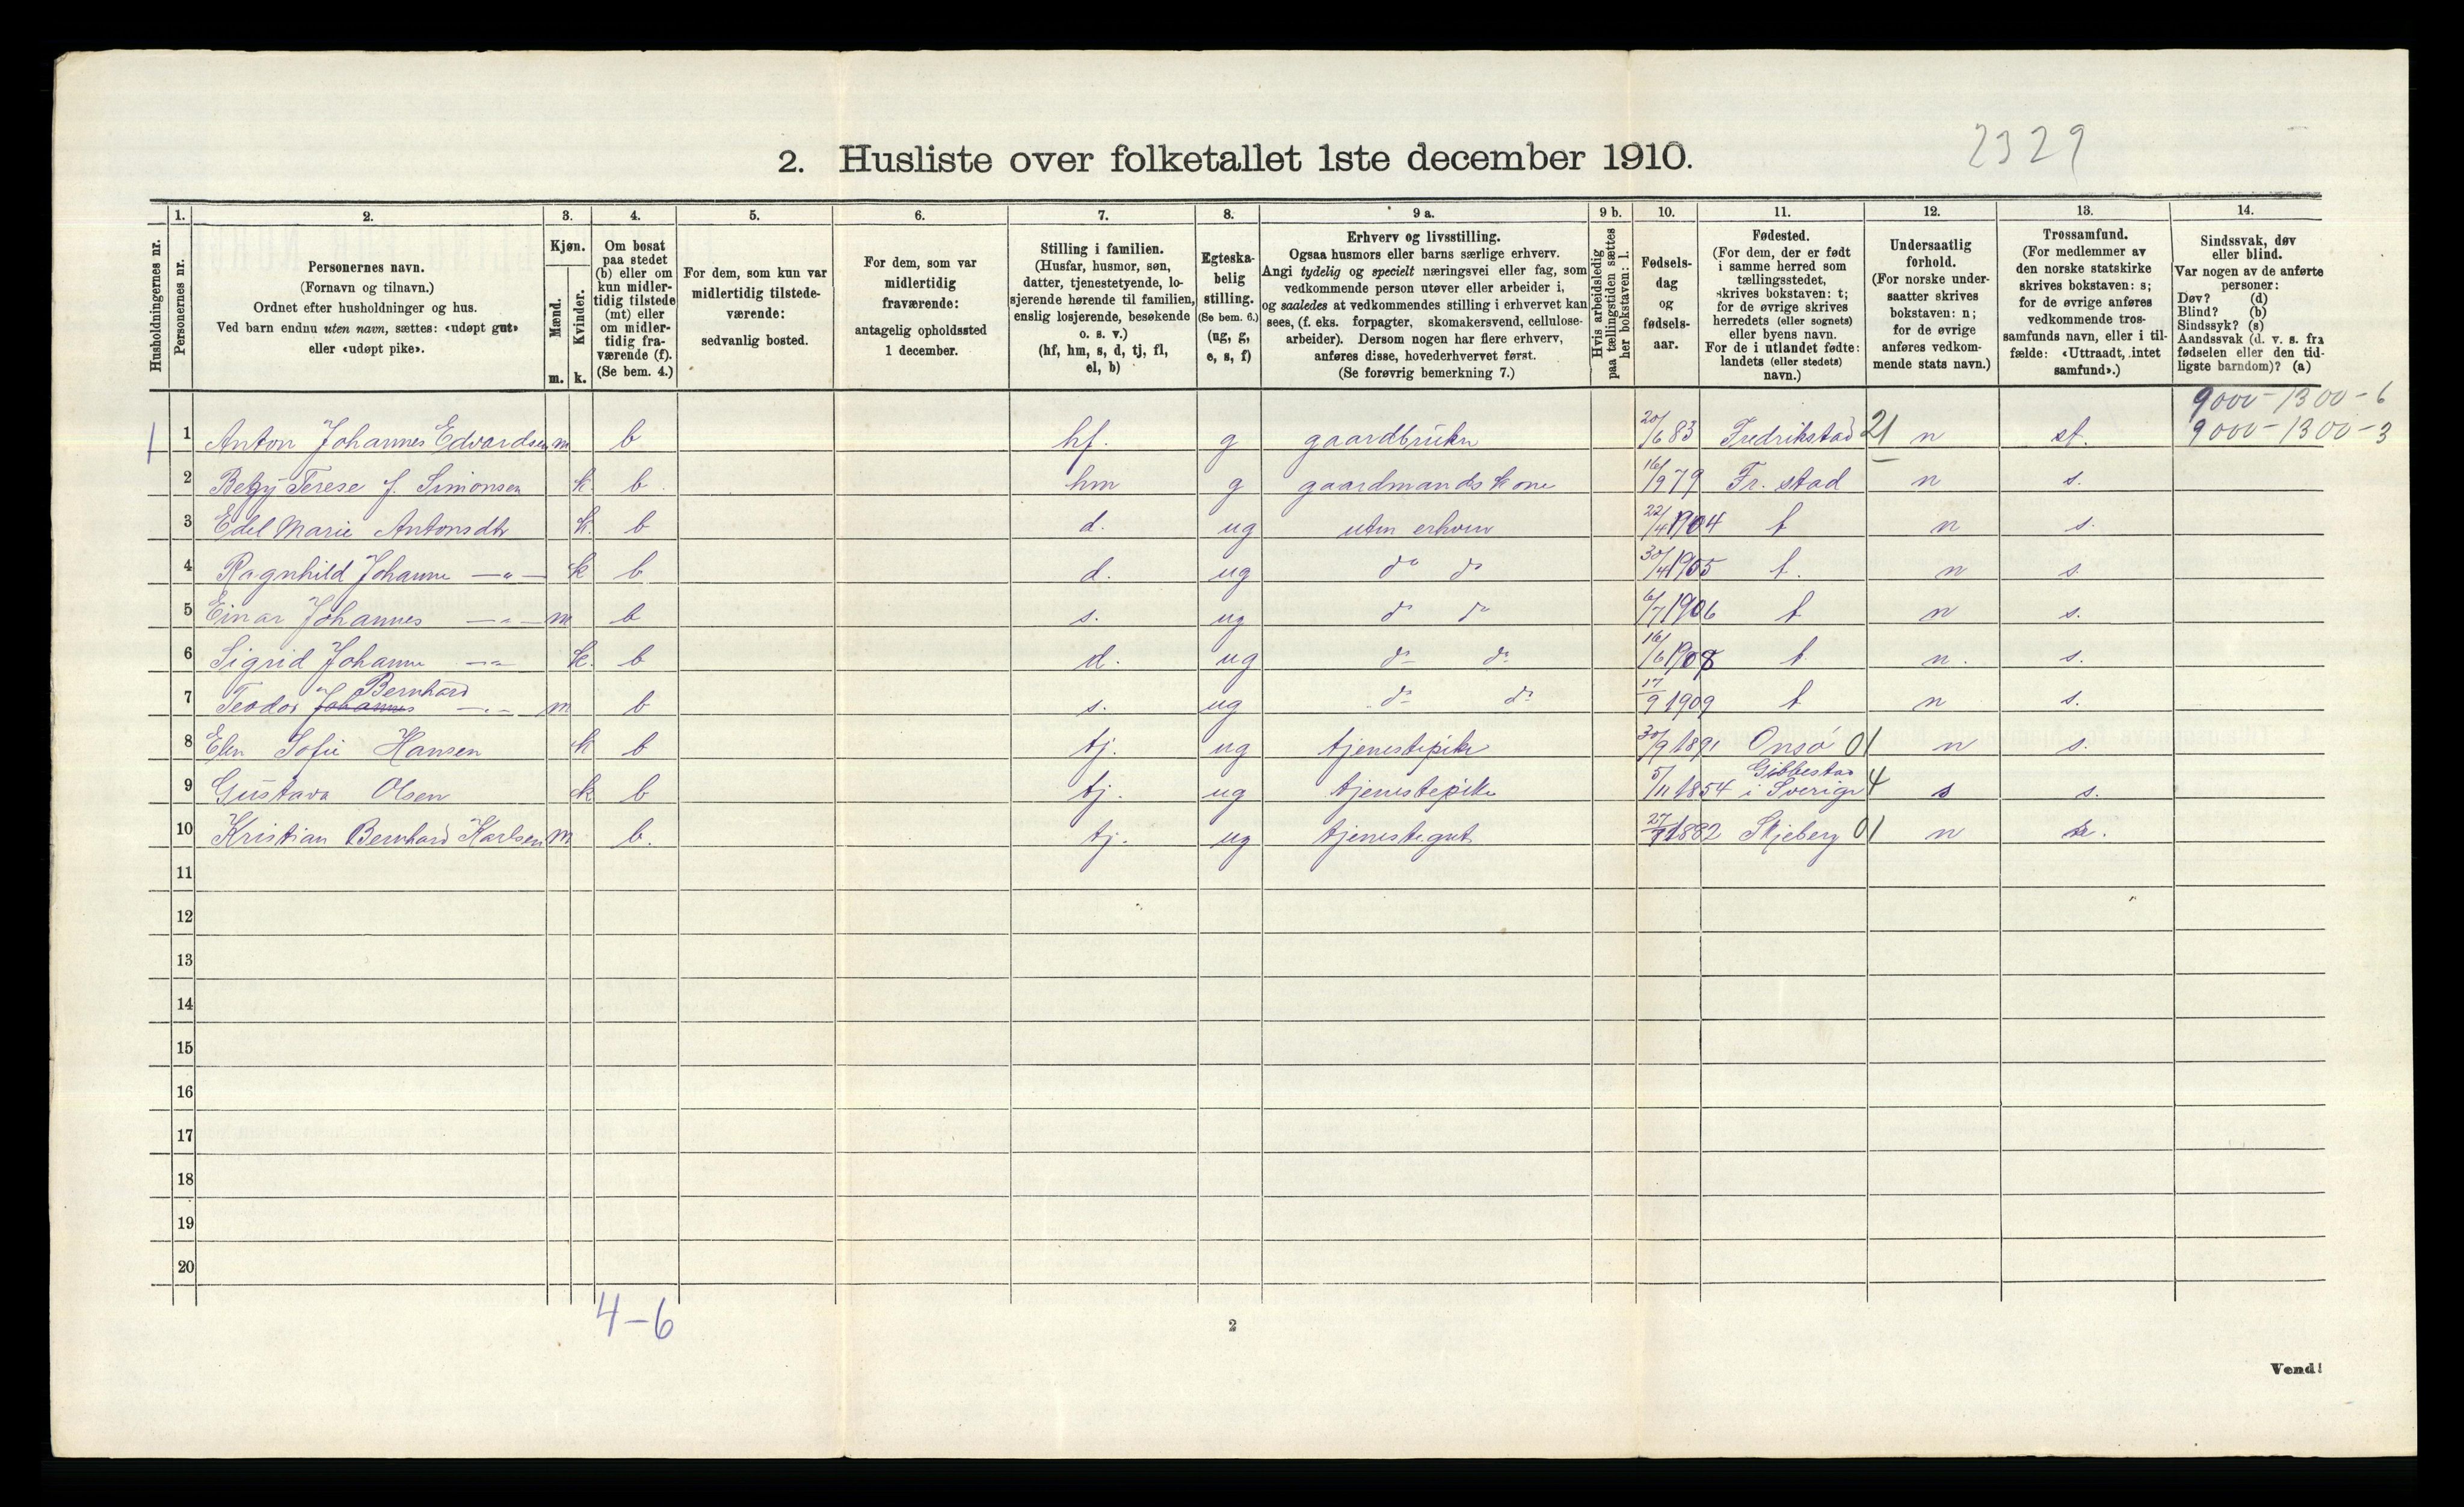 2329
2. Husliste over folketallet 1ste december 1910.
Husholdningernes nr.
1.
Personernes nr.
2.
Personernes navn.
(Fornavn og tilnavn.)
Ordnet efter husholdninger og hus.
Ved barn endnu uten navn, sættes: «udøpt gut»
eller «udøpt pike».
3.
Kjøn.
Mænd.
Kvinder.
m.
k.
4.
Om bosat
paa stedet
(b) eller om
kun midler-
tidig tilstede
(mt) eller
om midler-
tidig fra-
værende (f).
(Se bem. 4.)
5.
For dem, som kun var
midlertidig tilstede-
værende:
sedvanlig bosted.
6.
For dem, som var
midlertidig
fraværende:
antagelig opholdssted
1 december.
7.
Stilling i familien.
(Husfar, husmor, søn,
datter, tjenestetyende, lo-
sjerende hørende til familien,
enslig losjerende, besøkende
o. s. v.)
(hf, hm, s, d, tj, fl,
el, b)
8.
Egteska-
belig
stilling.
(Se bem. 6.)
(ug, g,
e, s, f)
9 a.
Erhverv og livsstilling.
Ogsaa husmors eller barns særlige erhverv.
Angi tydelig og specielt næringsvei eller fag, som
vedkommende person utøver eller arbeider i,
og saaledes at vedkommendes stilling i erhvervet kan
sees, (f. eks. forpagter, skomakersvend, cellulose-
arbeider). Dersom nogen har flere erhverv,
anføres disse, hovederhvervet først.
(Se forøvrig bemerkning 7.)
9 b.
Hvis arbeidsledig
paa tællingstiden sættes
her bokstaven: l.
10.
Fødsels-
dag
og
fødsels-
aar.
11.
Fødested.
(For dem, der er født
i samme herred som
tællingsstedet,
skrives bokstaven: t;
for de øvrige skrives
herredets (eller sognets)
eller byens navn.
For de i utlandet fødte:
landets (eller stedets)
navn.)
12.
Undersaatlig
forhold.
(For norske under-
saatter skrives
bokstaven: n;
for de øvrige
anføres vedkom-
mende stats navn.)
13.
Trossamfund.
(For medlemmer av
den norske statskirke
skrives bokstaven: s;
for de øvrige anføres
vedkommende tros-
samfunds navn, eller i til-
fælde: «Uttraadt, intet
samfund».)
14.
Sindssvak, døv
eller blind.
Var nogen av de anførte
personer:
Døv? (d)
Blind? (b)
Sindssyk? (s)
Aandssvak (d. v. s. fra
fødselen eller den tid-
ligste barndom)? (a)
9000-1300-6
1 1 Anton Johannes Edvardsen m b hf. g gaardbruker 20/6 83 Fredrikstad 21 n st. 9000-1300-3
2 Betzy Terese f. Simonsen k. b. hm g gaardmandskone 16/9 79 Fr. stad n s.
3 Edel Marie Antonsdtr k. b d. ug uten erhverv 22/4 1904 t n s.
4 Ragnhild Johanne —"— k b d. ug do do 30/4 1905 t. n s.
5 Einar Johannes —"— m b s. ug do do 6/7 1906 t n s.
6 Sigrid Johanne —"— k. b d. ug do do 16/6 1908 t n. s.
Bernhard
7 Teodor Johannes —"— m b s. ug do do 17/9 1909 t n s.
8 Elen Sofie Hansen k b tj. ug tjenestepike 30/9 1891 Onsø 01 n s.
Gibbestad
9 Gustava Olsen k b tj. ug tjenestepike 5/11 1854 i Sverige 4 s s.
10 Kristian Bernhard Karlsen m b. tj. ug tjenestegut 27/7 1882 Skjeberg 01 n
11
12
13
14
15
16
17
18
19
20
4-6
2
Vend!